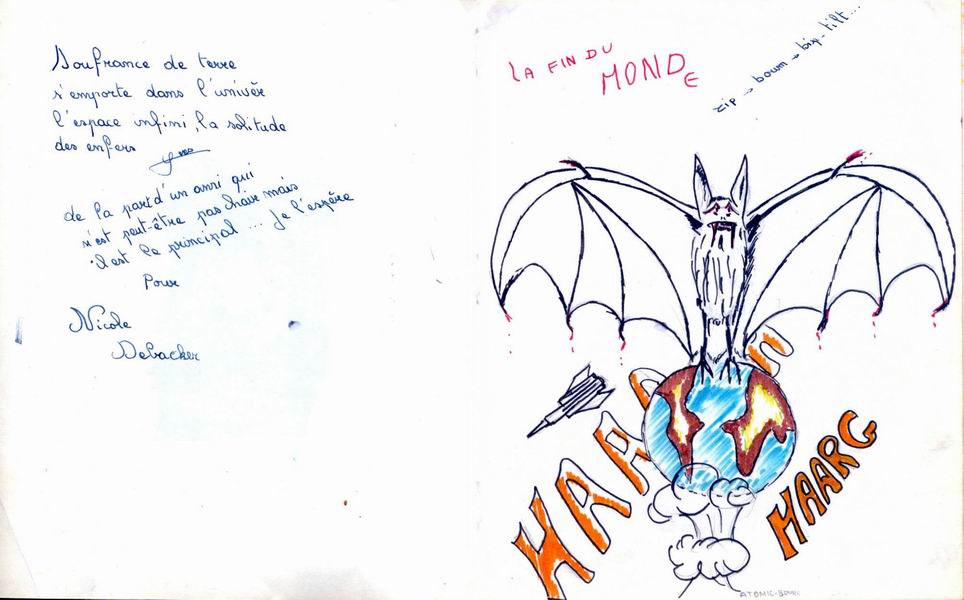 Soufrance de terre
s'emporte dans l'univèr
l'espace infini, la solitude
des enfers
de la part d'un ami qui
n'est peut-être pas mais
il est le principal ... je l'espère
Pour
Nicole
Debacker
LA FIN DU
MONDE
zip → boum → bip - tilt...
HAAA
HAARG
ATOMIC-BOUM